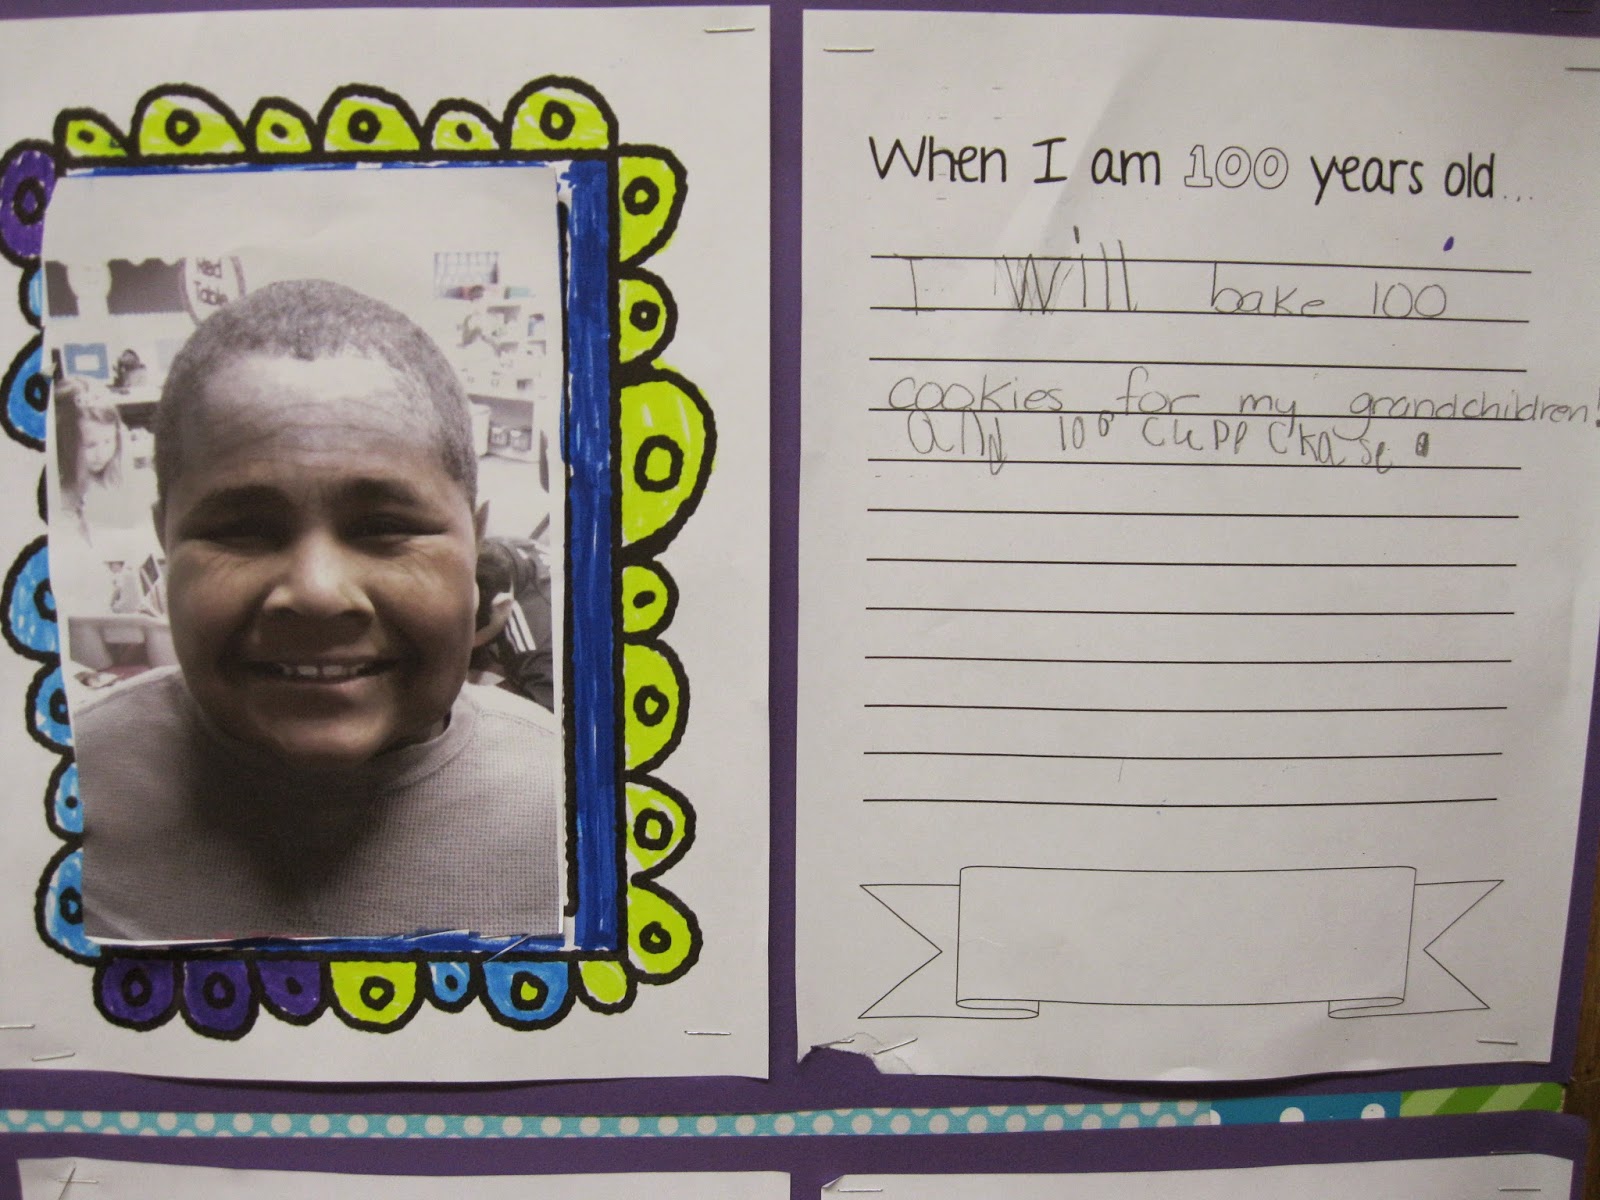 Red
Table
When I am 100 years old...
I will bake 100
cookies for my grandchildren!
and 100 cupp ckase.